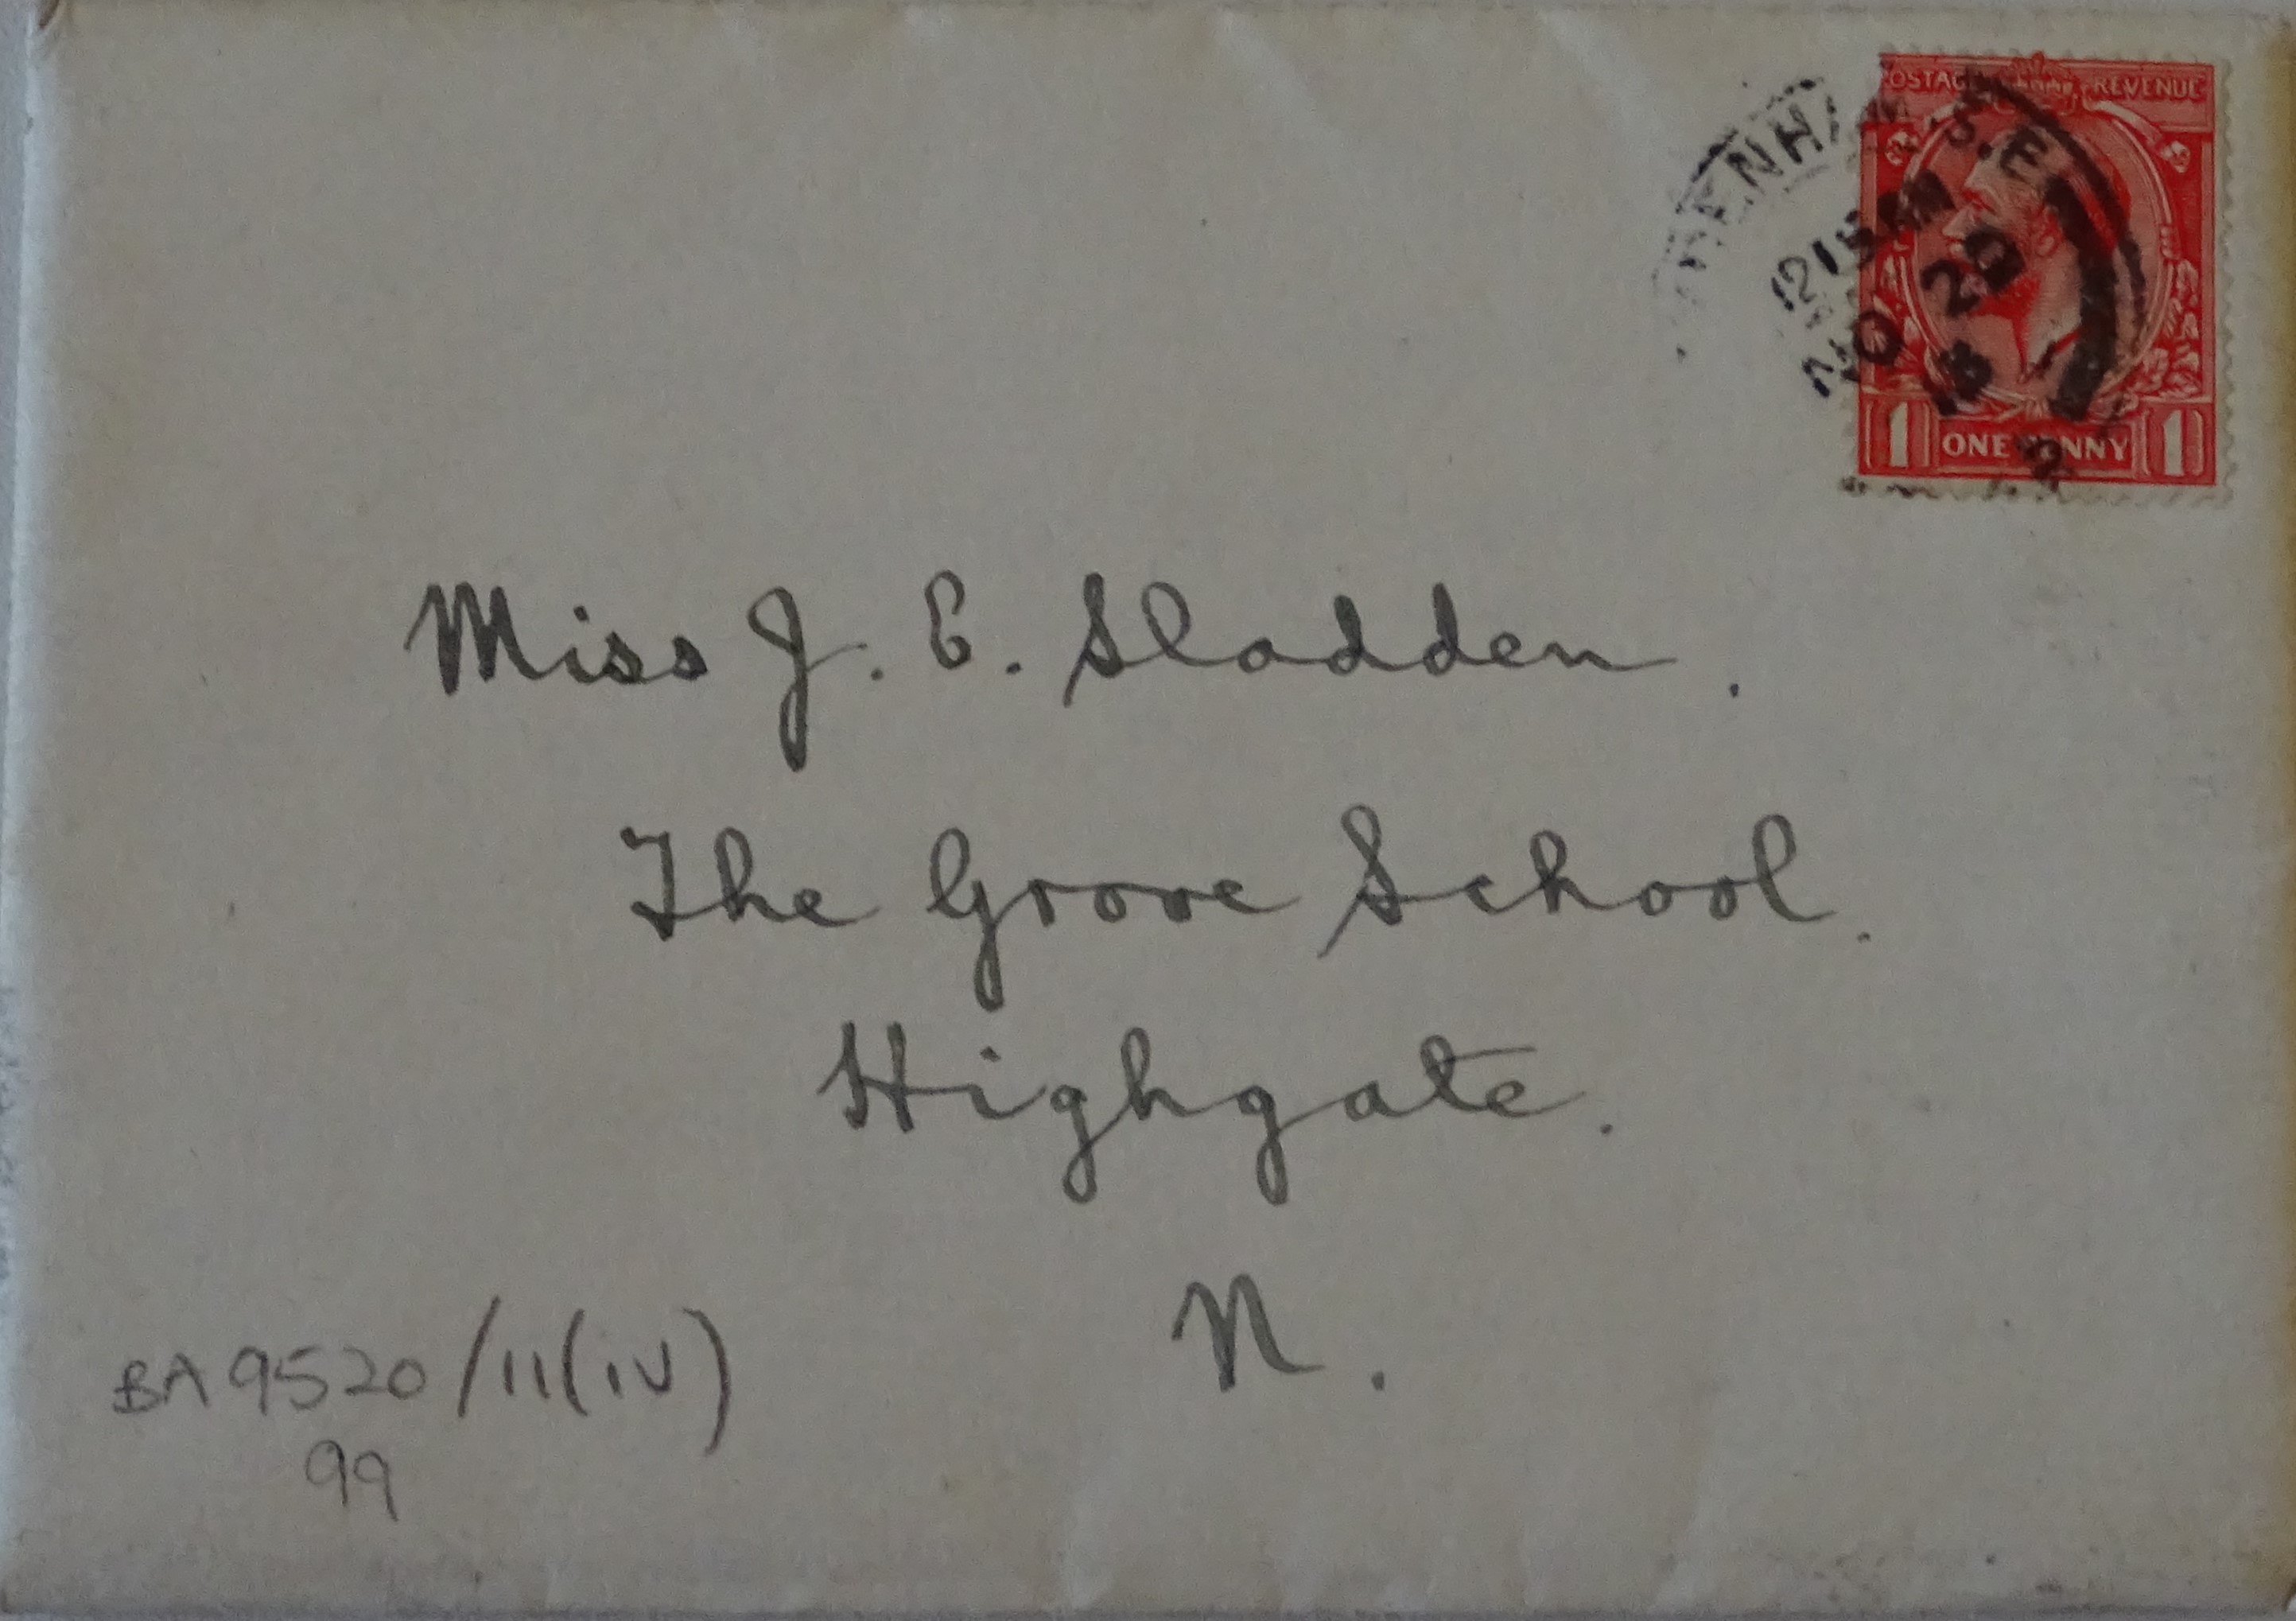 POSTAGE REVENUE
S.E.
12 15 AM
NO 29
15
1 ONE PENNY 1
Miss J. E. Sladden.
The Grove School.
Highgate.
N.
BA 9520/11(iv)
99